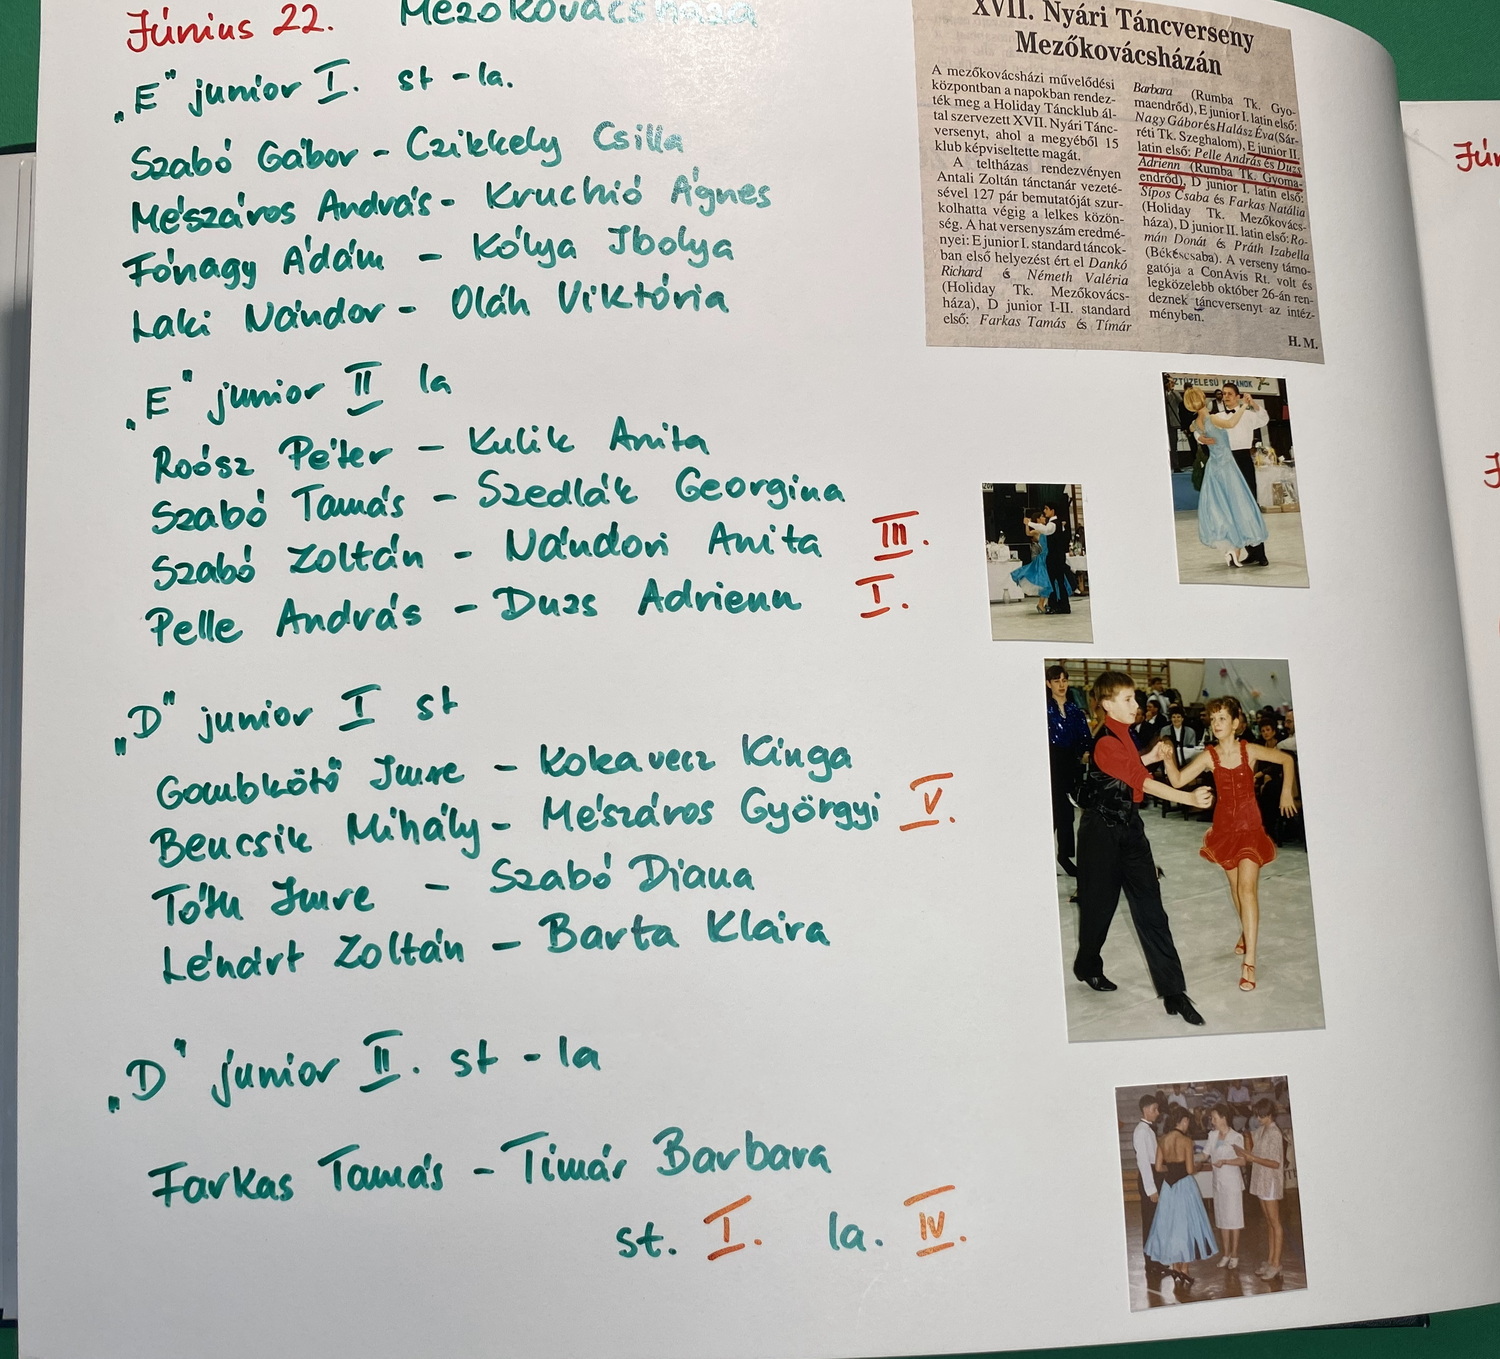 Június 22. Mezőkovácsháza
„E" junior I. st - la.
Szabó Gábor - Czikkely Csilla
Mészáros András - Kruchió Ágnes
Fónagy Ádám - Kólya Ibolya
Laki Nándor - Oláh Viktória
„E" junior II la
Roósz Péter - Kulik Anita
Szabó Tamás - Szedlák Georgina
Szabó Zoltán - Nándori Anita III.
Pelle András - Duzs Adrienn I.
„D" junior I st
Gombkötő Imre - Kokavecz Kinga
Bencsik Mihály - Mészáros Györgyi V.
Tóth Imre - Szabó Diana
Lénárt Zoltán - Barta Klára
„D" junior II. st - la
Farkas Tamás - Tímár Barbara
st. I. la. IV.
XVII. Nyári Táncverseny
Mezőkovácsházán
A mezőkovácsházi művelődési
központban a napokban rendez-
ték meg a Holiday Táncklub ál-
tal szervezett XVII. Nyári Tánc-
versenyt, ahol a megyéből 15
klub képviseltette magát.
A teltházas rendezvényen
Antali Zoltán tánctanár vezeté-
sével 127 pár bemutatóját szur-
kolhatta végig a lelkes közön-
ség. A hat versenyszám eredmé-
nyei: E junior I. standard táncok-
ban első helyezést ért el Dankó
Richard és Németh Valéria
(Holiday Tk. Mezőkovács-
háza), D junior I-II. standard
első: Farkas Tamás és Tímár
Barbara (Rumba Tk. Gyo-
maendrőd), E junior I. latin első:
Nagy Gábor és Halász Éva (Sár-
réti Tk. Szeghalom), E junior II.
latin első: Pelle András és Duzs
Adrienn (Rumba Tk. Gyoma-
endrőd), D junior I. latin első:
Sipos Csaba és Farkas Natália
(Holiday Tk. Mezőkovács-
háza), D junior II. latin első: Ro-
mán Donát és Práth Izabella
(Békéscsaba). A verseny támo-
gatója a ConAvis Rt. volt és
legközelebb október 26-án ren-
deznek táncversenyt az intéz-
ményben.
H. M.